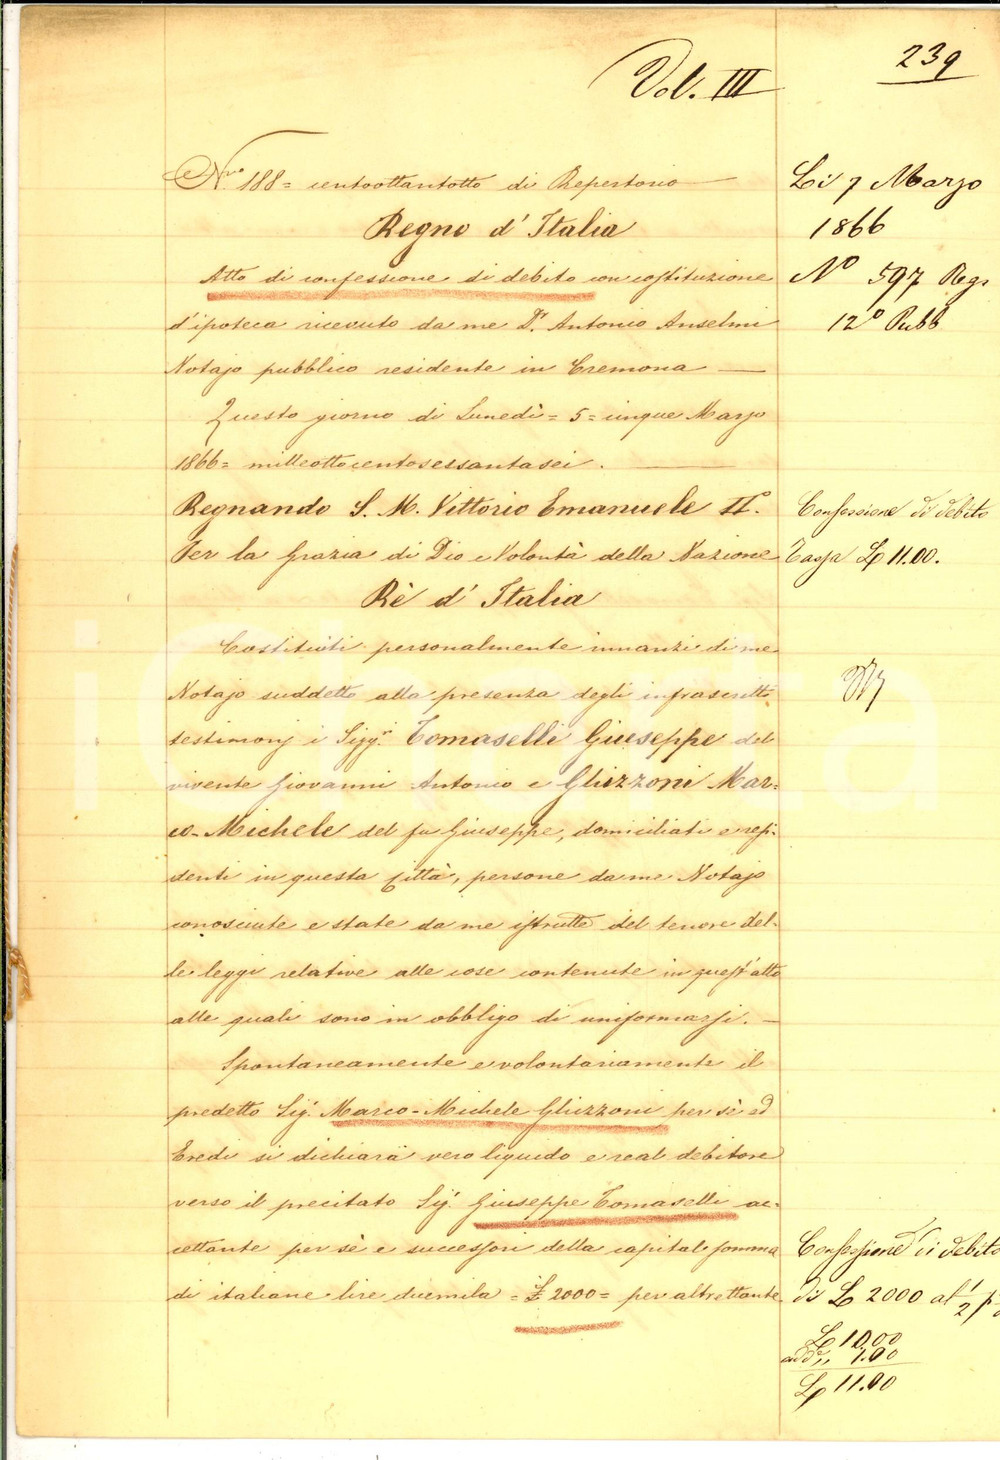 239
Vol. III
N.ro 188= centoottantotto di Repertorio
Regno d'Italia
Atto di confessione di debito con costituzione
d'ipoteca ricevuto da me Dr. Antonio Anselmi
Notajo pubblico residente in Cremona
Questo giorno di Lunedì= 5= cinque Marzo
1866= milleottocentosessantasei.
Regnando S. M. Vittorio Emanuele II.°
Per la Grazia di Dio e Volontà della Nazione
Rè d'Italia
Costituiti personalmente innanzi di me
Notajo suddetto alla presenza degli infrascritti
testimonj i Sigg.ri Tomaselli Giuseppe del
vivente Giovanni Antonio e Ghizzoni Mar=
co-Michele del fu Giuseppe, domiciliati e resi=
denti in questa Città, persone da me Notajo
conosciute e state da me istrutte del tenore del=
le leggi relative alle cose contenute in quest'atto
alle quali sono in obbligo di uniformarsi.
Spontaneamente e volontariamente il
predetto Sig.r Marco-Michele Ghizzoni per sè ed
Eredi si dichiara vero liquido e real debitore
verso il precitato Sig.r Giuseppe Tomaselli ac=
cettante per sè e successori della capital somma
di italiane lire duemila =£ 2000= per altrettante
Li 7 Marzo
1866
N° 597 Regs
12° Pubb
Confessione di debito
Tassa L 11.00.
Confessione di debito
di L 2000 al 1/2 p
L 10.00
add. " 1.00
L 11.00